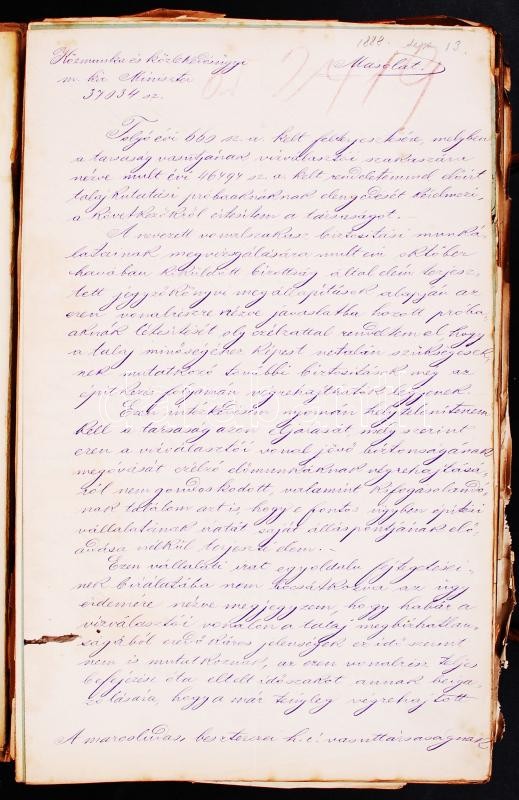 1888. sept 13.
Közmunka és közlekedésügyi
m. kir. Miniszter
Másolat.
37934 sz.
Folyó évi 660 sz. a. kelt felterjesztésére, melyben
a társaság vasútjának vízválasztói szakaszára
nézve mult évi 46494 sz. a. kelt rendeletemmel előírt
talajkutatási próbaaknáknak elengedését kérelmezi,
a következőkről értesítem a társaságot. –
A nevezett vonalszakasz biztosítási munká-
latainak megvizsgálására mult évi október
havában kiküldött bizottság által elém terjesz-
tett jegyzőkönyvi megállapítások alapján az
ezen vonalrészre nézve javaslatba hozott próba
aknák létesítését oly czélzattal rendeltem el, hogy
a talaj minőségéhez képest netalán szükségesek-
nek mutatkozó további biztosítások még az
építkezés folyamán végrehajthatók legyenek.
Ezen intézkedésem nyomán helytelenítenem
kell a társaság azon eljárását, mely szerint
ezen a vízválasztói vonal jövő biztonságának
megóvását czélzó előmunkáknak végrehajtásá-
ról nem gondoskodott, valamint kifogásolandó-
nak találom azt is, hogy e fontos ügyben építési
vállalatának iratát saját álláspontjának elő-
adása nélkül terjeszti elém. –
Ezen vállalati irat egyoldalu fejtegetései-
nek birálatába nem bocsátkozva az ügy
érdemére nézve megjegyzem, hogy habár a
vízválasztói vonalon a talaj megbizhatlan-
ságából eredő káros jelenségek ez idő szerint
nem is mutatkoznak, az ezen vonalrész teljes
befejezése óta eltelt időszakot annak iga-
zolására, hogy a már tényleg végrehajtott
A marosludas beszterczei h. é. vasuttársaságnak